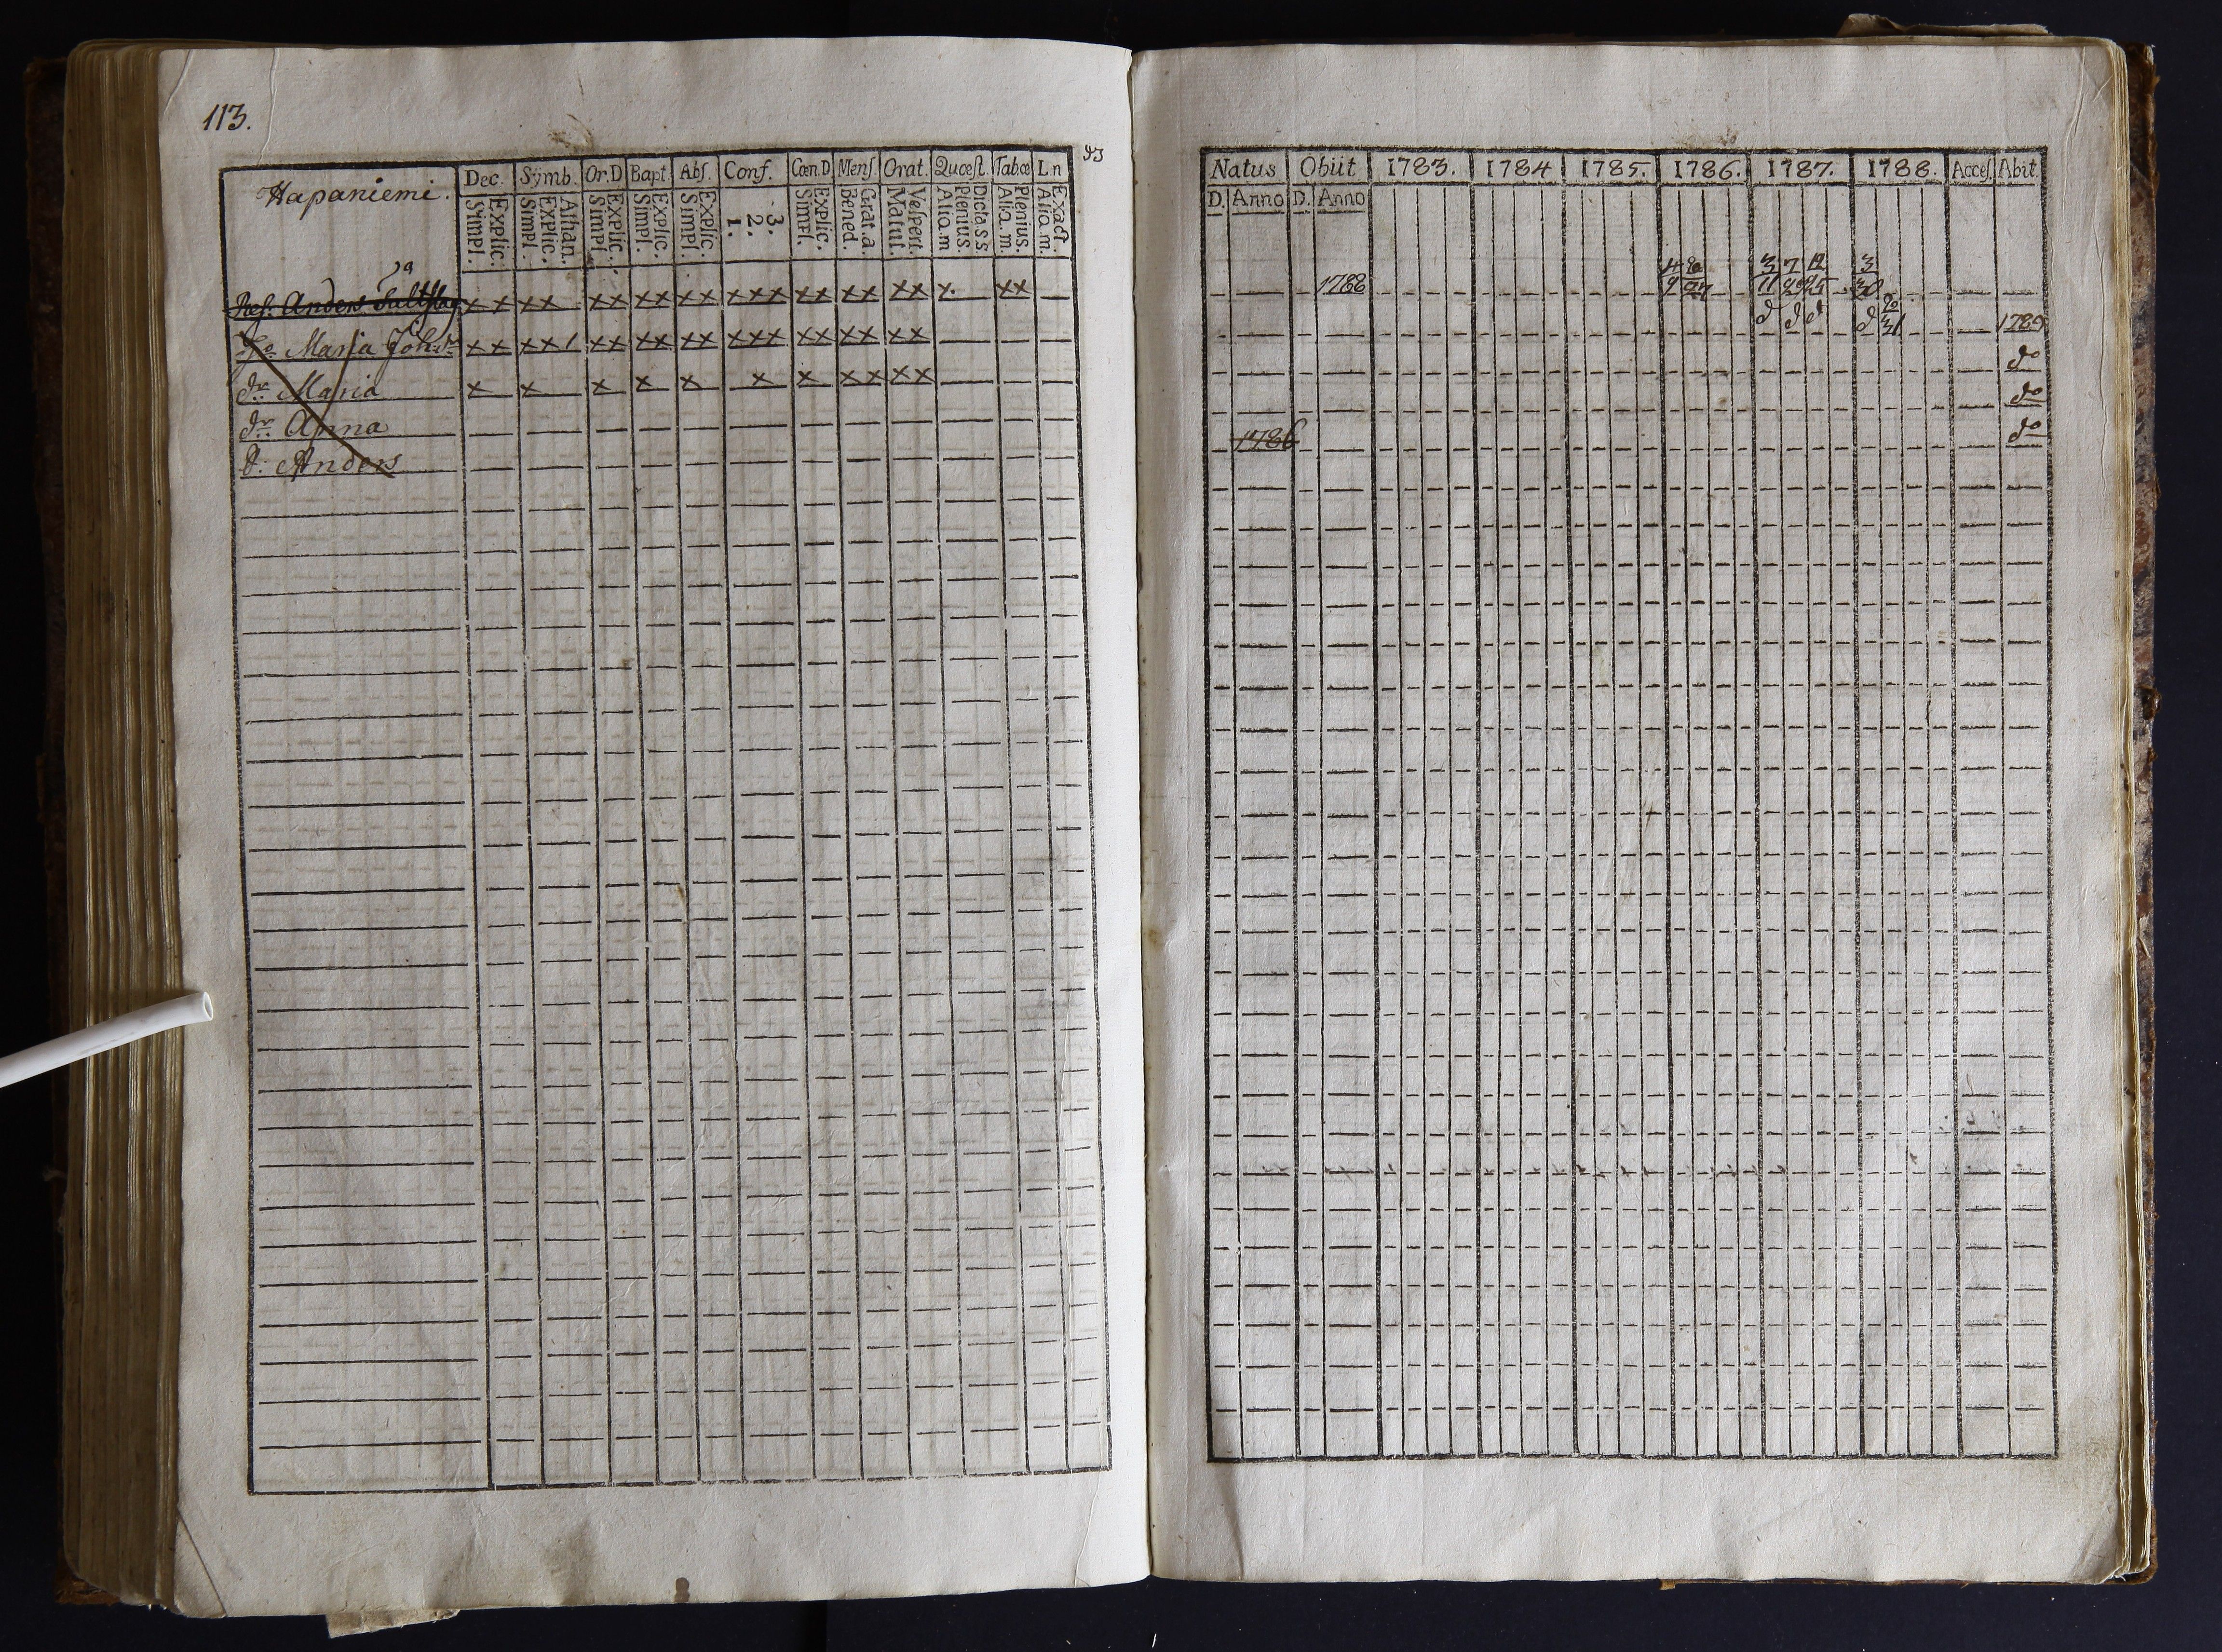 113.
Hapaniemi.
Dec. Symb. Or.D Bapt. Abſ. Conf. Cœn.D Menſ. Orat. Quœſt. Tab.œ L.n
Explic. Simpl. Athan. Explic. Simpl. Explic. Simpl. Explic. Simpl. Explic. Simpl. 3. 2. 1. Explic. Simpl. Grat.a. Bened. Veſpert. Matut. Dicta.S.S Plenius. Aliq.m Plenius. Aliq.m. Exact. Aliq.m.
Anders x x x x x x x x x x x x x x x x x x x x x. x x
Maria Joh.dr x x x x / x x x x x x x x x x x x x x x
dr. Maria x x x x x x x x x x x
dr. Anna
Anders
Natus Obiit 1783. 1784 1785. 1786. 1787. 1788. Acceſ. Abit.
D. Anno D. Anno
3 7 12 3
1788 11 30
d d d d 31 1789
do
do
1786 do